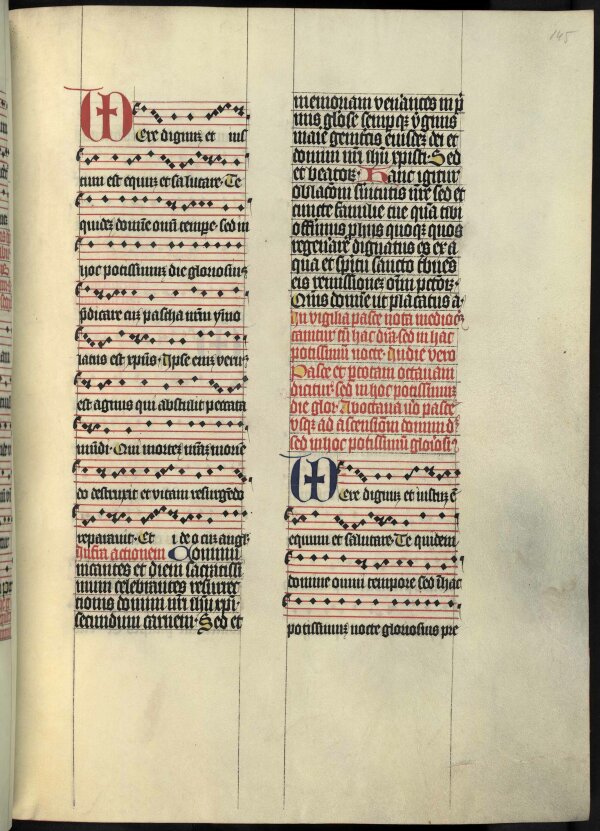 145
Vere dignum et ius
tum est equum et salutare. Te
quidem domine omni tempore. sed in
hoc potissimum die gloriosius
predicare cum pascha nostrum ymo
latus est xpistus. Ipse enim verus
est agnus qui abstulit peccata
mundi. Qui mortem nostram morien
do destruxit et vitam resurgendo
reparavit. Et i de o cum angelis
Infra actionem Communi
cantes et diem sacratissi
mum celebrantes resurrec
tionis domini nostri ihu xpi.
secundum carnem. Sed et
memoriam venerantes in pri
mis gloriose semperque virginis
marie genitricis eiusdem dei et
domini nostri ihu xpisti. Sed
et beatorum. Hanc igitur
oblacionem servitutis nostre sed et
cuncte familie tue quam tibi
offerimus pro hiis quoque quos
regenerare dignatus es ex a
qua et spiritu sancto tribuens
eis remissionem omnium peccatorum.
Quesumus domine ut placatus a.
In vigilia pasce
cantetur cum hac clausula sed in hac
potissimum nocte. In die vero
Pasce et per totam octavam
dicitur. sed in hoc potissimum
die glor. Ab octava vero pasce
usque ad ascensionem domini dr
sed in hoc potissimum gloriosi
Vere dignum et iustum e
equum et salutare. Te quidem
domine omni tempore sed in hac
potissimum nocte gloriosius pre